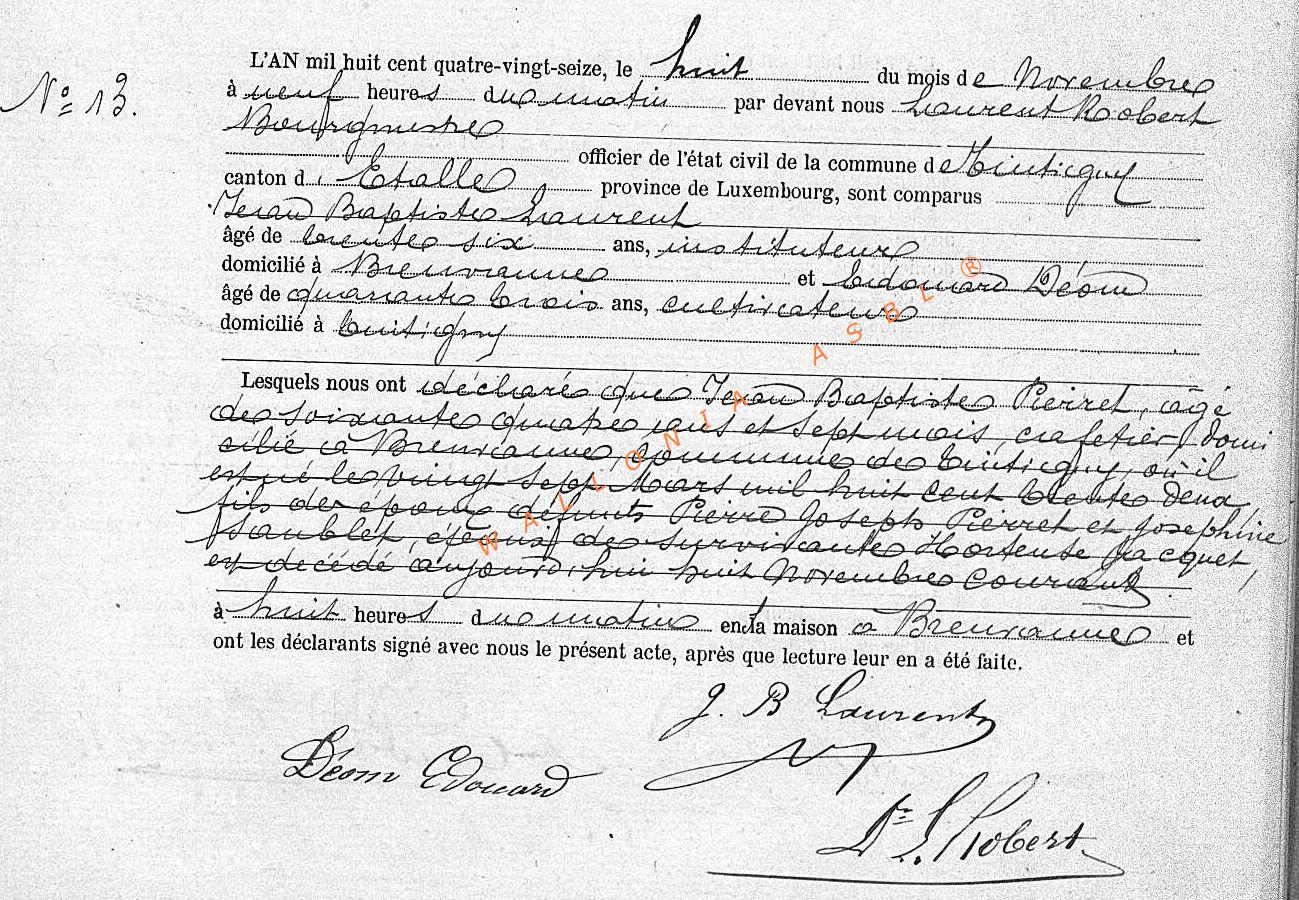 N° 13.
L'AN mil huit cent quatre-vingt-seize, le huit du mois de Novembre
à neuf heures du matin par devant nous Laurent Robert
Bourgmestre
officier de l'état civil de la commune de Tintigny
canton d'Etalle province de Luxembourg, sont comparus
Jean Baptiste Laurent
âgé de trente six ans, instituteur
domicilié à Breuvanne et Edouard Déom
âgé de quarante trois ans, cultivateur
domicilié à Tintigny
Lesquels nous ont déclaré que Jean Baptiste Pierret, âgé
de soixante quatre ans et sept mois, cafetier, domi
cilié à Breuvanne, commune de Tintigny, où il
est né le vingt sept Mars mil huit cent trente deux,
fils des époux défunts Pierre Joseph Pierret et Joséphine
de survivante Hortense Jacquet,
est décédé aujourd'hui huit Novembre courant
à huit heures du matin en la maison à Breuvanne et
ont les déclarants signé avec nous le présent acte, après que lecture leur en a été faite.
J. B Laurent
Déom Edouard
Dr L. Robert
WALLONIA ASBL ®